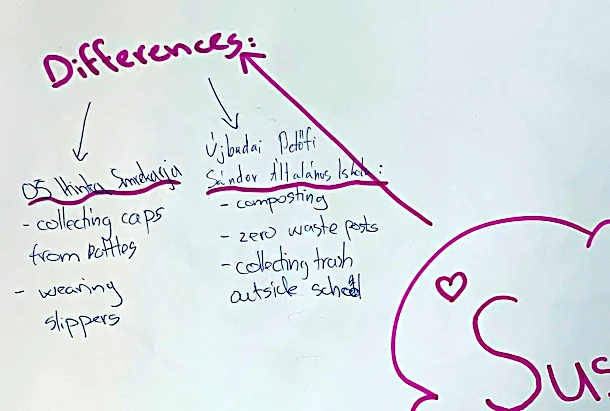 Differences:
OŠ Hinka Smrekarja
- collecting caps
from bottles
- wearing
slippers
Újbudai Petőfi
Sándor Általános Iskola:
- composting
- zero waste posts
- collecting trash
outside school
Sus